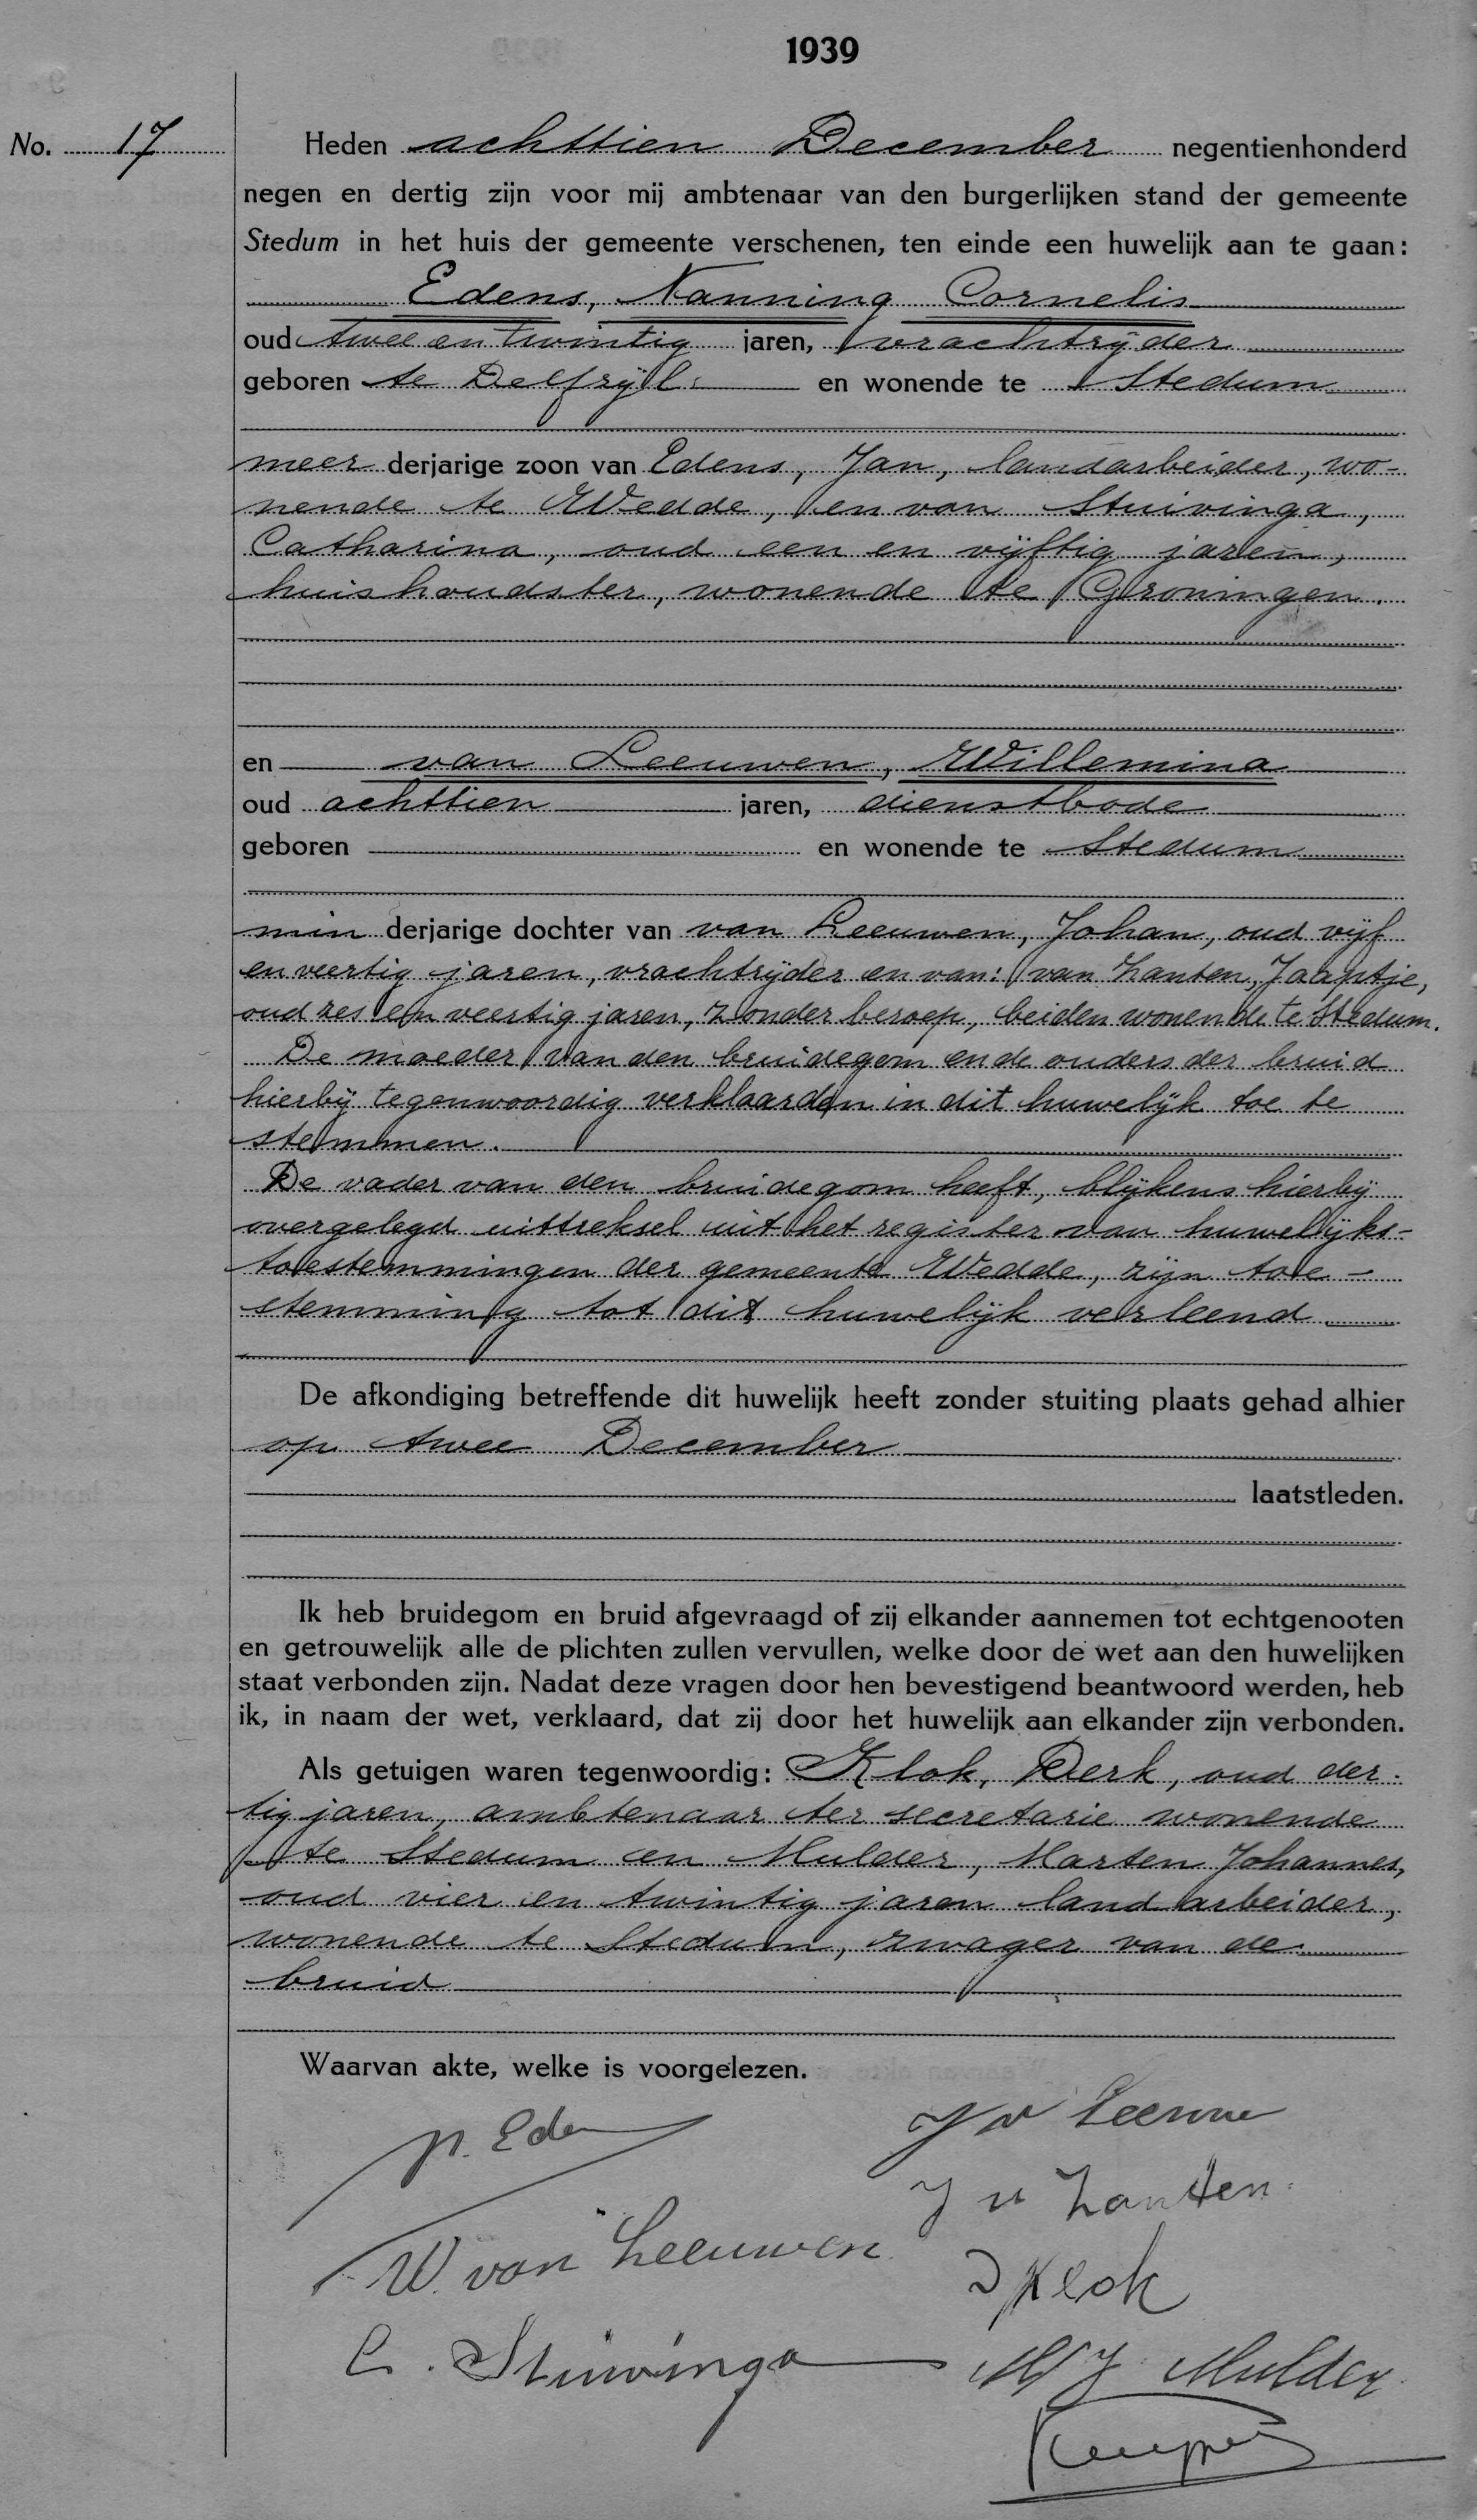 1939
No. 17
Heden achttien December negentienhonderd
negen en dertig zijn voor mij ambtenaar van den burgerlijken stand der gemeente
Stedum in het huis der gemeente verschenen, ten einde een huwelijk aan te gaan:
Edens, Nanning Cornelis
oud twee en twintig jaren, vrachtrijder
geboren te Delfzijl en wonende te Stedum
meer derjarige zoon van Edens, Jan, landarbeider, wo-
nende te Wedde, en van Stuivinga,
Catharina, oud een en vijftig jaren,
huishoudster, wonende te Groningen.
en van Leeuwen, Willemina
oud achttien jaren, dienstbode
geboren en wonende te Stedum
min derjarige dochter van van Leeuwen, Johan, oud vijf
en veertig jaren, vrachtrijder en van: van Zanten, Jaaptje,
oud zes en veertig jaren, zonder beroep, beiden wonende te Stedum.
De moeder van den bruidegom en de ouders der bruid
hierbij tegenwoordig verklaarden in dit huwelijk toe te
stemmen.
De vader van den bruidegom heeft, blijkens hierbij
overgelegd uittreksel uit het register van huwelijks-
toestemmingen der gemeente Wedde, zijn toe-
stemming tot dit huwelijk verleend
De afkondiging betreffende dit huwelijk heeft zonder stuiting plaats gehad alhier
op twee December
laatstleden.
Ik heb bruidegom en bruid afgevraagd of zij elkander aannemen tot echtgenooten
en getrouwelijk alle de plichten zullen vervullen, welke door de wet aan den huwelijken
staat verbonden zijn. Nadat deze vragen door hen bevestigend beantwoord werden, heb
ik, in naam der wet, verklaard, dat zij door het huwelijk aan elkander zijn verbonden.
Als getuigen waren tegenwoordig: Klok, Derk, oud der-
tig jaren, ambtenaar ter secretarie wonende
te Stedum en Mulder, Marten Johannes,
oud vier en twintig jaren landarbeider,
wonende te Stedum, zwager van de
bruid
Waarvan akte, welke is voorgelezen.
N. Eden
J v Leeuwe
J v Zanten
W. van Leeuwen
D Klok
C. Stuivinga
M J Mulder